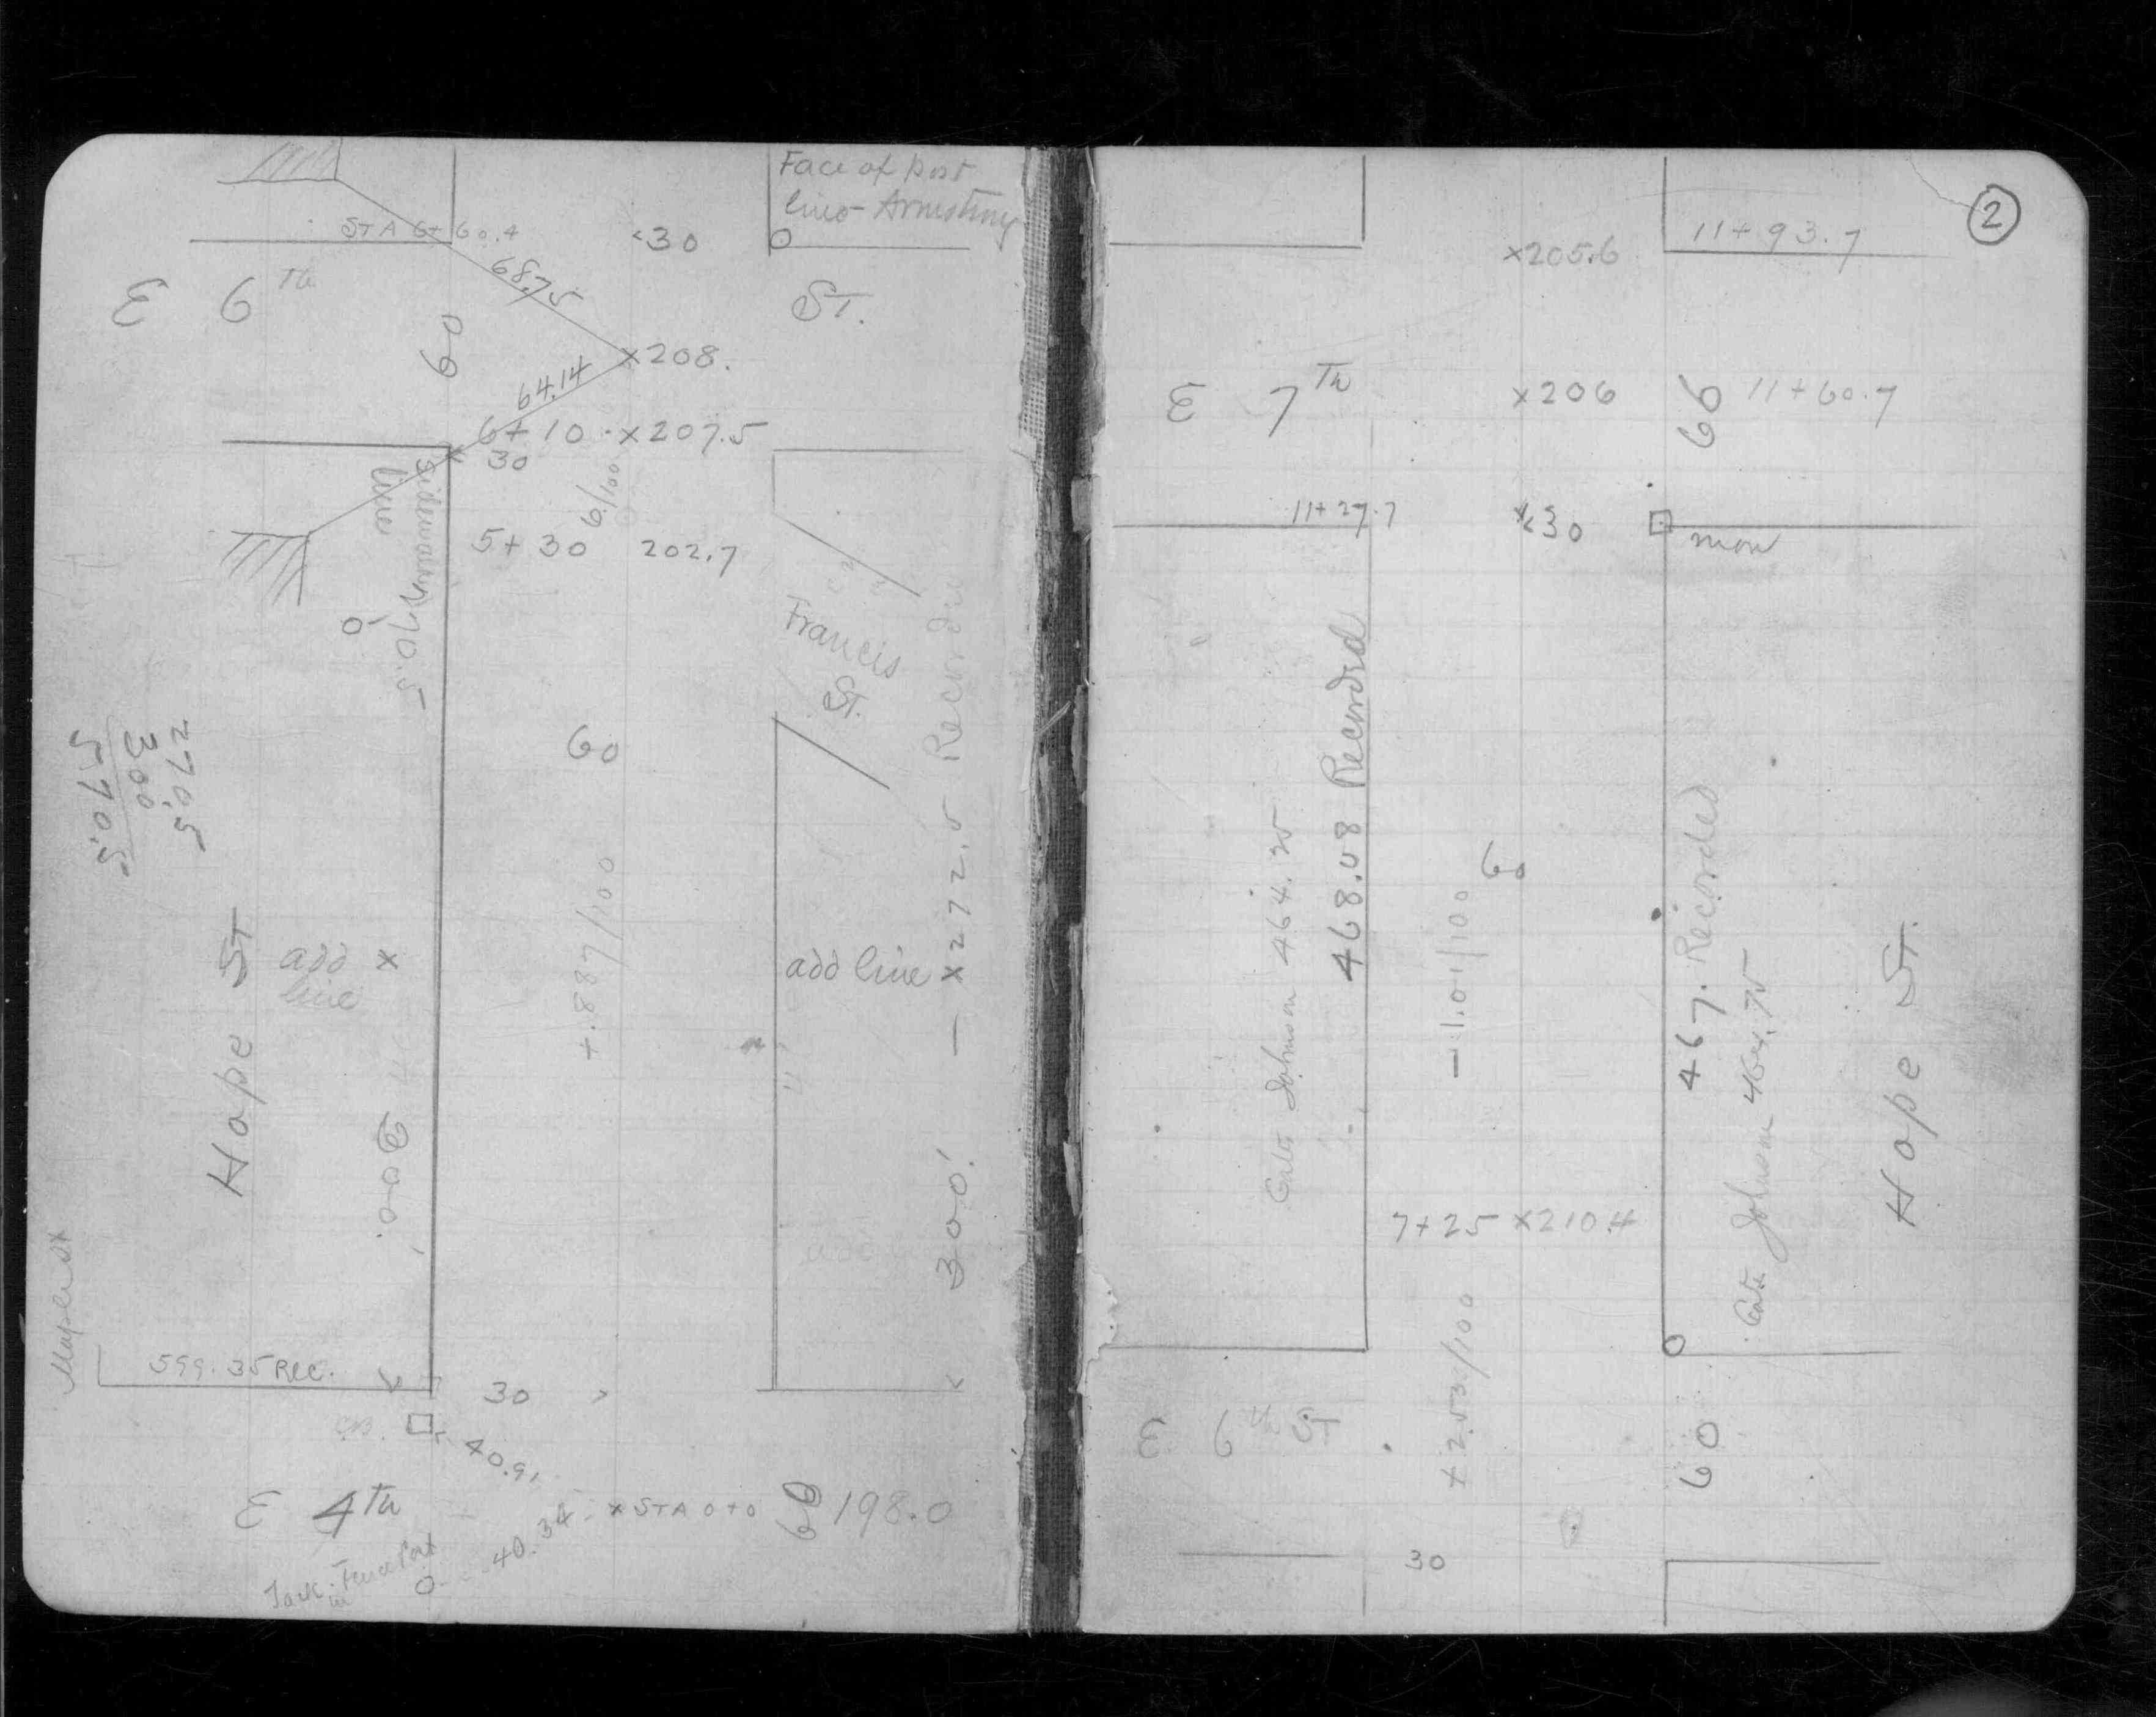 Face of post
line - Armstrong
STA 6+60.4
30
68.75
E 6 Th
ST.
60
x208.
64.14
6+10 x207.5
30
Sidewalk
line
6./100
5+30 202.7
270.5
Francis
ST.
60
270.5
300
570.5
272.5 Recorded
+.887/100
Hope ST
add
line
x
add line x
300.
300'
Maple St
599.35 REC.
30
40.91
E 4 Th
x STA 0+0
60
198.0
40.34
Tack in Fence Post
2
11+93.7
x205.6
E 7 Th
x206
66
11+60.7
11+27.7
30
mon
468.48 Recorded
Gates Johnson 464.25
60
-1.01/100
467. Recorded
Gates Johnson 464.75
Hope ST.
7+25 x210.4
+2.53/100
E 6 th ST
60
30